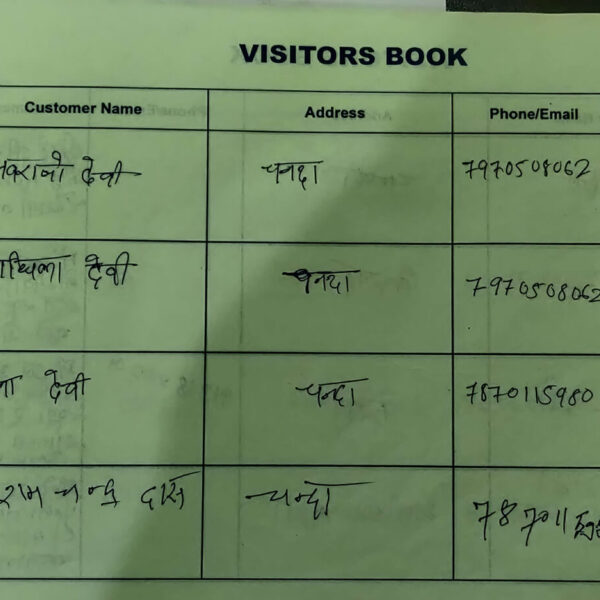 VISITORS BOOK
Customer Name Address Phone/Email
देवी चनदा 7970508062
देवी चनदा 7970508062
देवी चन्दा 7870115980
राम चन्द्र दास चन्दा 78701